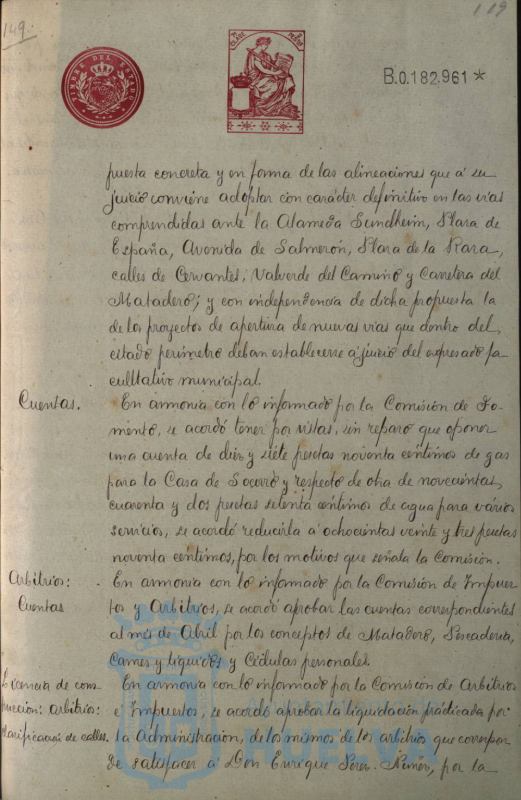 149
119
TIMBRE DEL ESTADO
B.0.182,961 *
puesta concreta y en forma de las alineaciones que á su
juicio conviene adoptar con carácter definitivo en las vias
comprendidas ante la Alameda Sundheim, Plaza de
España, Avenida de Salmerón, Plaza de la
calles de Cervantes, Valverde del Camino y Carretera del
Matadero; y con independencia de dicha propuesta la
de los proyectos de apertura de nuevas vias que dentro del
citado perimetro deban establecerse a juicio del expresado fa
cultativo municipal.
Cuentas. En armonia con lo informado por la Comisión de Fo-
mento, se acordó tener por vistas, sin reparo que oponer
una cuenta de diez y siete pesetas noventa centimos de gas
para la Casa de Socorro y respecto de otra de novecientas
cuarenta y dos pesetas setenta centimos de agua para varios
servicios, se acordó reducirla a ochocientas veinte y tres pesetas
noventa centimos, por los motivos que señala la Comisión.
Arbitrios: En armonia con lo informado por la Comisión de Impues
Cuentas tos y Arbitrios, se acordó aprobar las cuentas correspondientes
al mes de Abril por los conceptos de Matadero, Pescaderia,
Carnes y liquidos y Cédulas personales.
Licencia de cons En armonia con lo informado por la Comisión de Arbitrios
trucción: arbitrios: e Impuestos, se acordó aprobar la liquidación practicada por
clasificación de calles. la Administración, de los mismos de los arbitrios que correspon
de satisfacer a Don Enrique Nuñez, por la
HUELVA